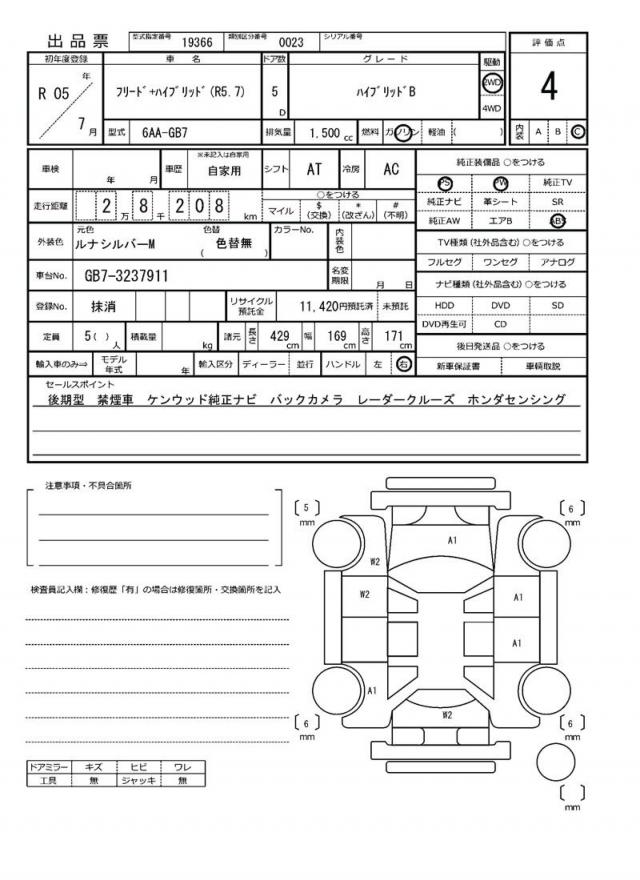 出品票 型式指定番号 19366 類別区分番号 0023 シリアル番号
初年度登録 車名 ドア数 グレード 駆動 評価点
R 05 年 7 月 フリード+ハイブリッド(R5.7) 5 D ハイブリッドB 2WD 4WD 4
型式 6AA-GB7 排気量 1.500 cc 燃料 ガソリン 軽油 ( ) 内装 A B C
車検 年 月 車歴 ※未記入は自家用 自家用 シフト AT 冷房 AC
走行距離 2 万 8 千 2 0 8 km ○をつける マイル $ (交換) * (改ざん) # (不明)
外装色 元色 ルナシルバーM 色替 ( 色替無 ) カラーNo. 内装色
車台No. GB7-3237911 名変期限 月 日
登録No. 抹消 リサイクル預託金 11,420円預託済 未預託
定員 5( )人 積載量 kg 諸元 長さ 429 cm 幅 169 cm 高さ 171 cm
輸入車のみ⇒ モデル年式 年 輸入区分 ディーラー 並行 ハンドル 左 右
純正装備品 ○をつける
PS PW 純正TV
純正ナビ 革シート SR
純正AW エアB ABS
TV種類(社外品含む)○をつける
フルセグ ワンセグ アナログ
ナビ種類(社外品含む)○をつける
HDD DVD SD
DVD再生可 CD
後日発送品 ○をつける
新車保証書 車輌取説
セールスポイント
後期型 禁煙車 ケンウッド純正ナビ バックカメラ レーダークルーズ ホンダセンシング
注意事項・不具合箇所
検査員記入欄:修復歴「有」の場合は修復箇所・交換箇所を記入
ドアミラー キズ ヒビ ワレ
工具 無 ジャッキ 無
[ 5 ] mm
[ 6 ] mm
A1
W2
W2
A1
A1
A1
W2
[ 6 ] mm
[ 6 ] mm
[ ] mm